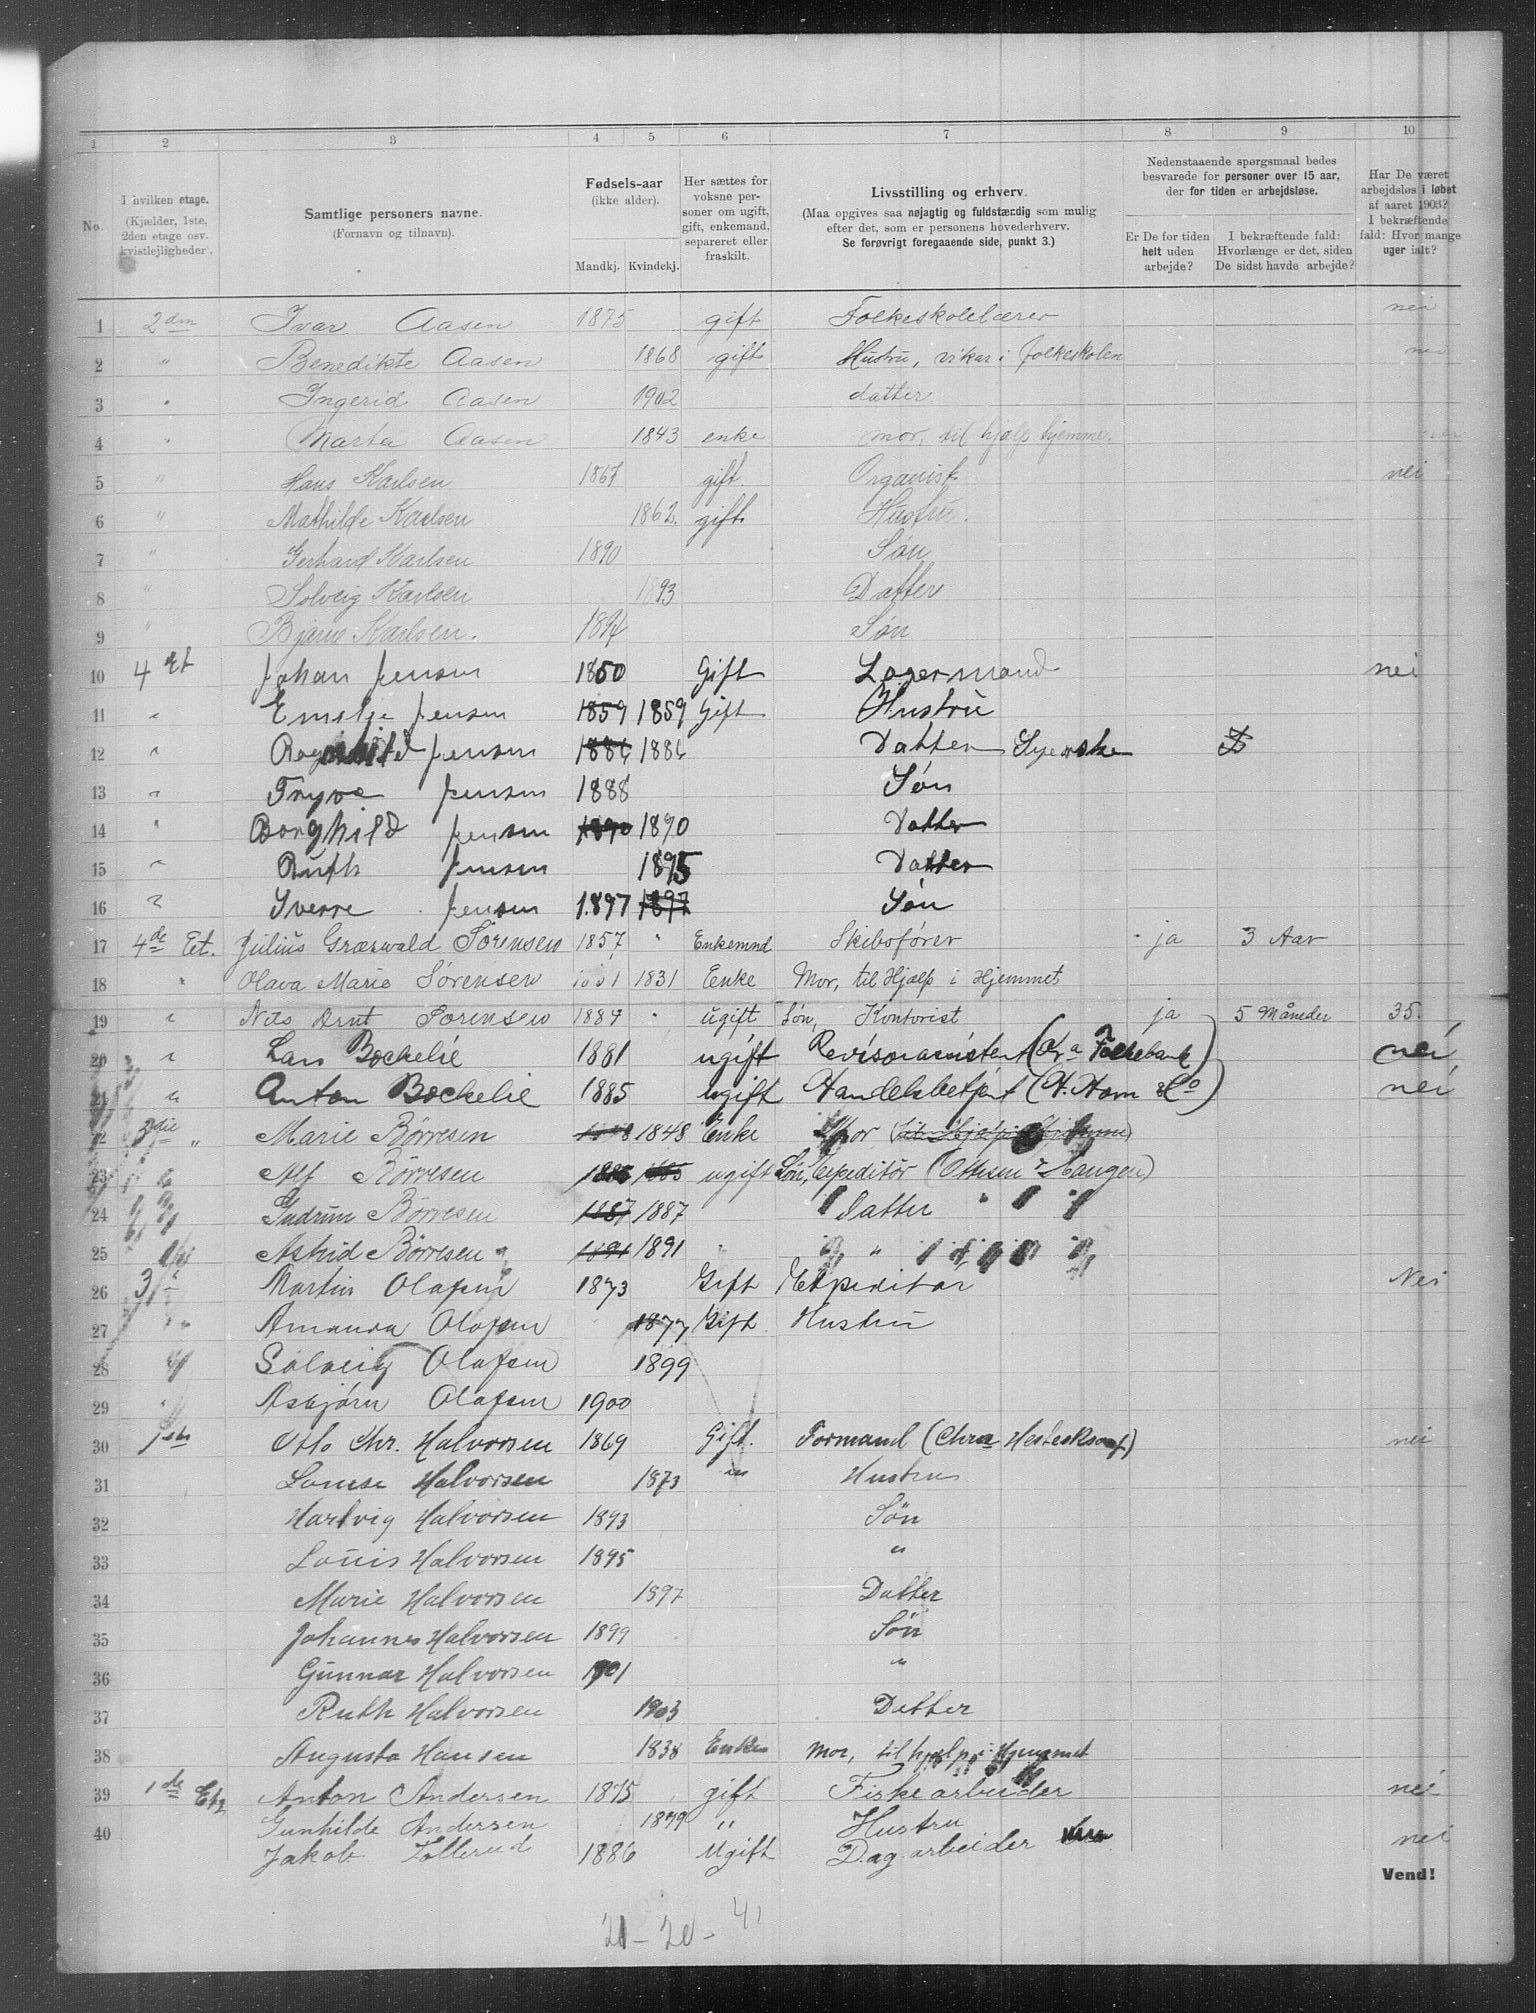 1 2 3 4 5 6 7 8 9 10
No. I hvilken etage. (Kjælder, 1ste, 2den etage osv. kvistlejligheder).
Samtlige personers navne. (Fornavn og tilnavn).
Fødsels-aar (ikke alder). Mandkj. Kvindekj.
Her sættes for voksne personer om ugift, gift, enkemand, separeret eller fraskilt.
Livsstilling og erhverv. (Maa opgives saa nøjagtig og fuldstændig som mulig efter det, som er personens hovederhverv. Se forøvrigt foregaaende side, punkt 3.)
Nedenstaaende spørgsmaal bedes besvarede for personer over 15 aar, der for tiden er arbejdsløse.
Er De for tiden helt uden arbejde?
I bekræftende fald: Hvorlænge er det, siden De sidst havde arbejde?
Har De været arbejdsløs i løbet af aaret 1903? I bekræftende fald: Hvor mange uger ialt?
1 2den Ivar Aasen 1875 gift Folkeskolelærer nei
2 " Benedikte Aasen 1868 gift Hustru, vikar i folkeskolen nei
3 " Ingerid Aasen 1902 datter
4 " Marta Aasen 1843 enke mor, til hjælp hjemme.
5 " Hans Karlsen 1867 gift. Organist nei
6 " Mathilde Karlsen 1862. gift Hustru.
7 " Gerhard Karlsen 1890 Søn
8 " Solveig Karlsen 1893 Datter
9 " Bjarne Karlsen. Søn
10 4 et Johan Jensen 1850 Gift Lagermand nei
11 " Jensen 1859 1859 Gift Hustru
12 " Jensen 1886 1886 Datter Syerske
13 " Trygve Jensen 1888 Søn
14 " Borghild Jensen 1890 1890 Datter
15 " Ruth Jensen 1895 Datter
16 " Sverre Jensen 1897 1897 Søn
17 4de Et. Julius Græswald Sørensen 1857 " Enkemnd Skibsfører ja 3 Aar
18 " Olava Marie Sørensen 1831 Enke Mor, til Hjælp i Hjemmet
19 " Nils Arnt Sørensen 1884 " ugift Søn, Kontorist ja 5 Måneder 35.
20 " Lars Bockelie 1881 ugift Revisorassistent (Kra Folkebank) nei
21 " Anton Bockelie 1885 ugift Handelsbetjent (H. Horn & Co) nei
22 3die " Marie Børresen 1848 1848 Enke Mor (til Hjælp i Hjemme)
23 Alf Børresen 1885 1885 ugift Søn, Expeditør (Ottesen & Langen)
24 Gudrun Børresen 1887 1887 Datter
25 Astrid Børresen 1891 1891 "
26 3 Martin Olafsen 1873 Gift Expeditør Nei
27 " Amanda Olafsen 1877 Gift Hustru
28 Solveig Olafsen 1899
29 Asbjørn Olafsen 1900
30 1ste Otto Chr. Halvorsen 1869 Gift. Formand (Chra Hesteskosøf) nei
31 Lovise Halvorsen 1873 " Hustru
32 Hartvig Halvorsen 1893 Søn
33 Louis Halvorsen 1895 "
34 Marie Halvorsen 1897 Datter
35 Johannes Halvorsen 1899 Søn
36 Gunnar Halvorsen 1901 "
37 Ruth Halvorsen 1903 Datter
38 Augusta Hansen 1838 Enke Mor, til hjælp i Hjemmet
39 1de Etg Anton Andersen 1875 gift Fiskearbeider nei
40 Gunhilde Andersen 1879 " Hustru
Jakob Tollerud 1886 Ugift Dagarbeider nei
Vend!
21 - 20 - 41